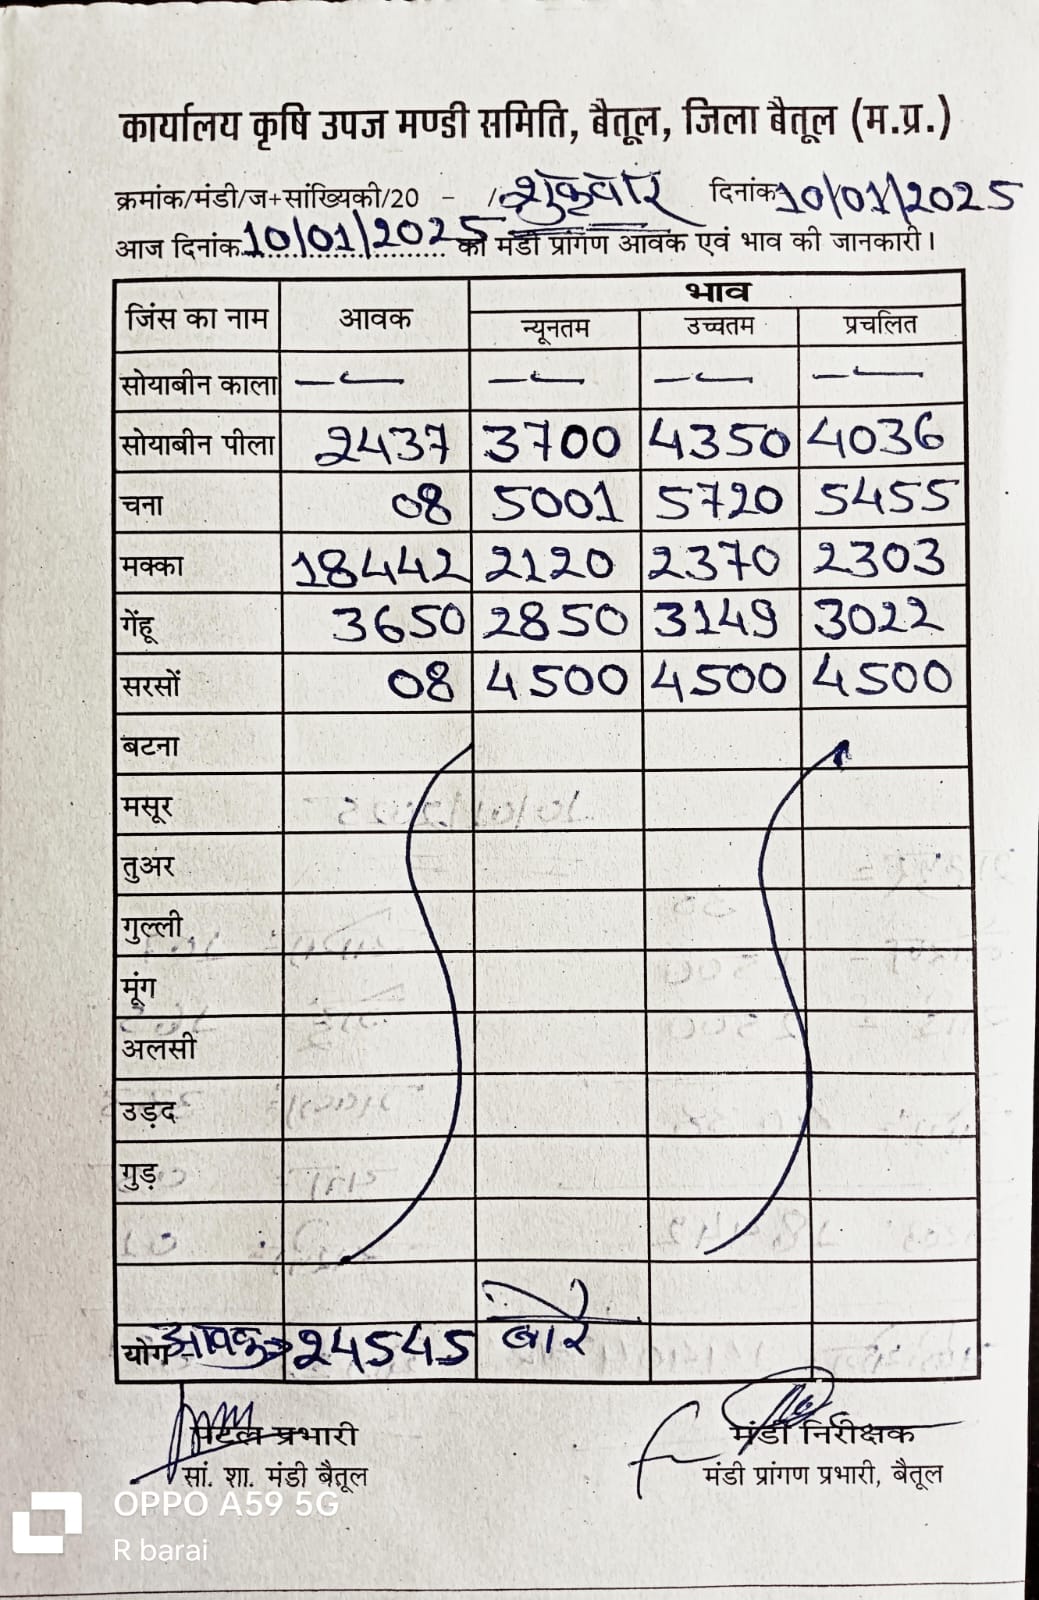 कार्यालय कृषि उपज मण्डी समिति, बैतूल, जिला बैतूल (म.प्र.)
क्रमांक/मंडी/ज+सांख्यिकी/20 - / शुक्रवार दिनांक 10/01/2025
आज दिनांक 10/01/2025 को मंडी प्रांगण आवक एवं भाव की जानकारी।
जिंस का नाम आवक भाव
न्यूनतम उच्चतम प्रचलित
सोयाबीन काला — — — —
सोयाबीन पीला 2437 3700 4350 4036
चना 08 5001 5720 5455
मक्का 18442 2120 2370 2303
गेंहू 3650 2850 3149 3022
सरसों 08 4500 4500 4500
बटना
मसूर
तुअर
गुल्ली
मूंग
अलसी
उड़द
गुड़
योग आवक→ 24545 बोरे
पटल प्रभारी मंडी निरीक्षक
सां. शा. मंडी बैतूल मंडी प्रांगण प्रभारी, बैतूल
OPPO A59 5G
R barai